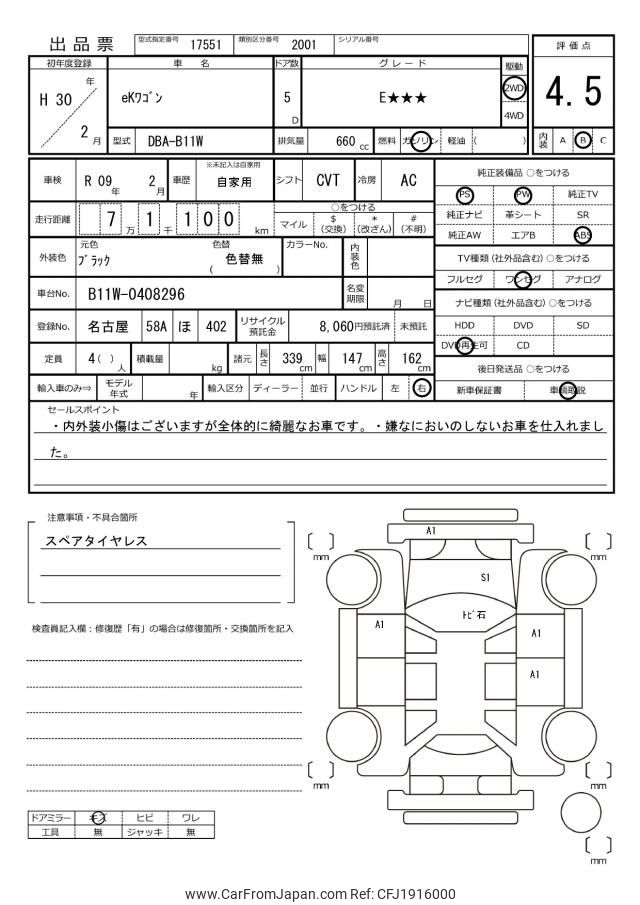 出品票 型式指定番号 17551 類別区分番号 2001 シリアル番号
評価点
4.5
初年度登録 車名 ドア数 グレード 駆動
H 30 年 2 月 eKワゴン 5 D E★★★ 2WD 4WD
型式 DBA-B11W 排気量 660 cc 燃料 ガソリン 軽油 ( )
内装 A B C
車検 R 09 年 2 月 車歴 ※未記入は自家用 自家用 シフト CVT 冷房 AC
走行距離 7 1 1 0 0 万 千 km
○をつける
マイル $ (交換) * (改ざん) # (不明)
外装色 元色 ブラック 色替 ( 色替無 ) カラーNo. 内装色
車台No. B11W-0408296 名変期限 月 日
登録No. 名古屋 58A ほ 402 リサイクル預託金 8,060円預託済 未預託
定員 4( ) 人 積載量 kg 諸元 長さ 339 cm 幅 147 cm 高さ 162 cm
輸入車のみ⇒ モデル年式 年 輸入区分 ディーラー 並行 ハンドル 左 右
純正装備品 ○をつける
PS PW 純正TV
純正ナビ 革シート SR
純正AW エアB ABS
TV種類(社外品含む)○をつける
フルセグ ワンセグ アナログ
ナビ種類(社外品含む)○をつける
HDD DVD SD
DVD再生可 CD
後日発送品 ○をつける
新車保証書 車輌取説
セールスポイント
・内外装小傷はございますが全体的に綺麗なお車です。・嫌なにおいのしないお車を仕入れまし
た。
注意事項・不具合箇所
スペアタイヤレス
検査員記入欄：修復歴「有」の場合は修復箇所・交換箇所を記入
A1
S1
トビ石
A1
A1
A1
mm
mm
mm
mm
mm
ドアミラー キズ ヒビ ワレ
工具 無 ジャッキ 無
www.CarFromJapan.com Ref: CFJ1916000